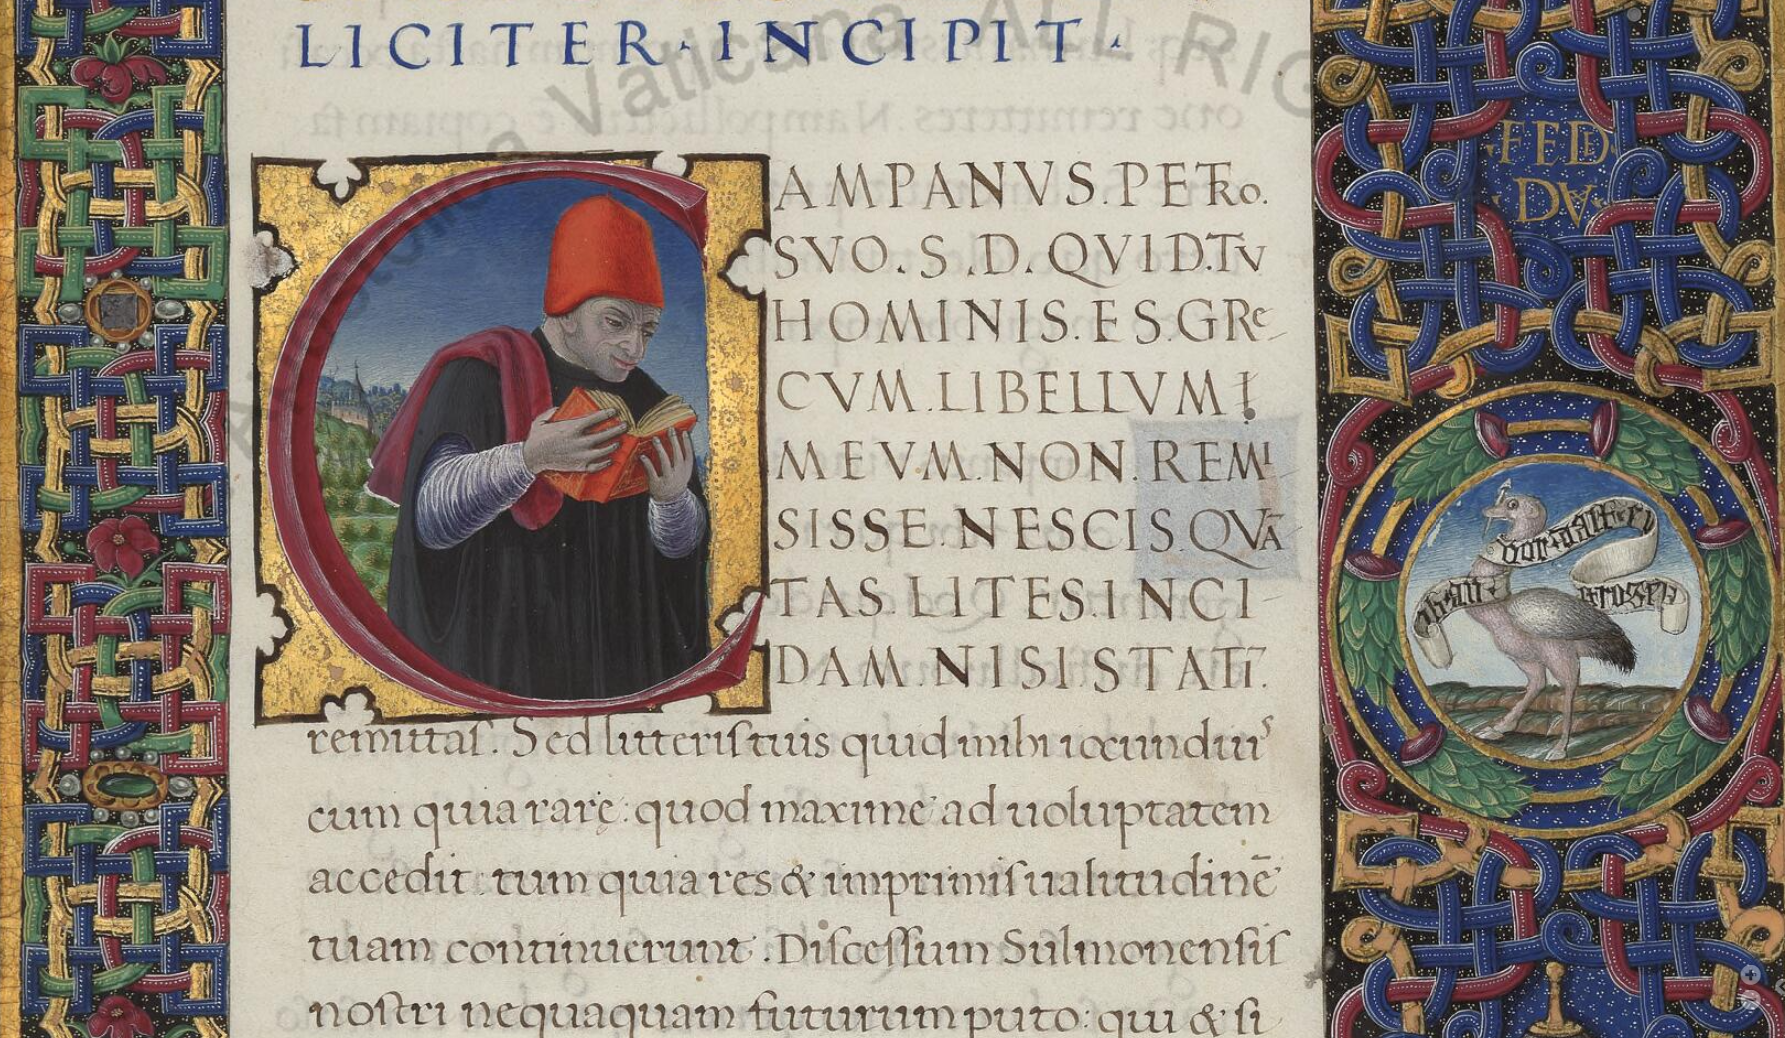 LICITER · INCIPIT ·
CAMPANVS.PETRo.
SVO.S.D.QVID.Tv
HOMINIS.ES.GRe
CVM.LIBELLVM!
MEVM.NON.REMI
SISSE.NESCIS.QVĀ
TAS.LITES.INCI
DAM.NISI.STATI.
remittas. Sed litteris tuis quid mihi iocundius
cum quia rarę: quod maxime ad uoluptatem
accedit: tum quia res & imprimis ualitudinē
tuam continuerunt. Discessum Sulmonensis
nostri nequaquam futurum puto: qui & si
·FED·
·DVX·
Vaticana ALL RIG